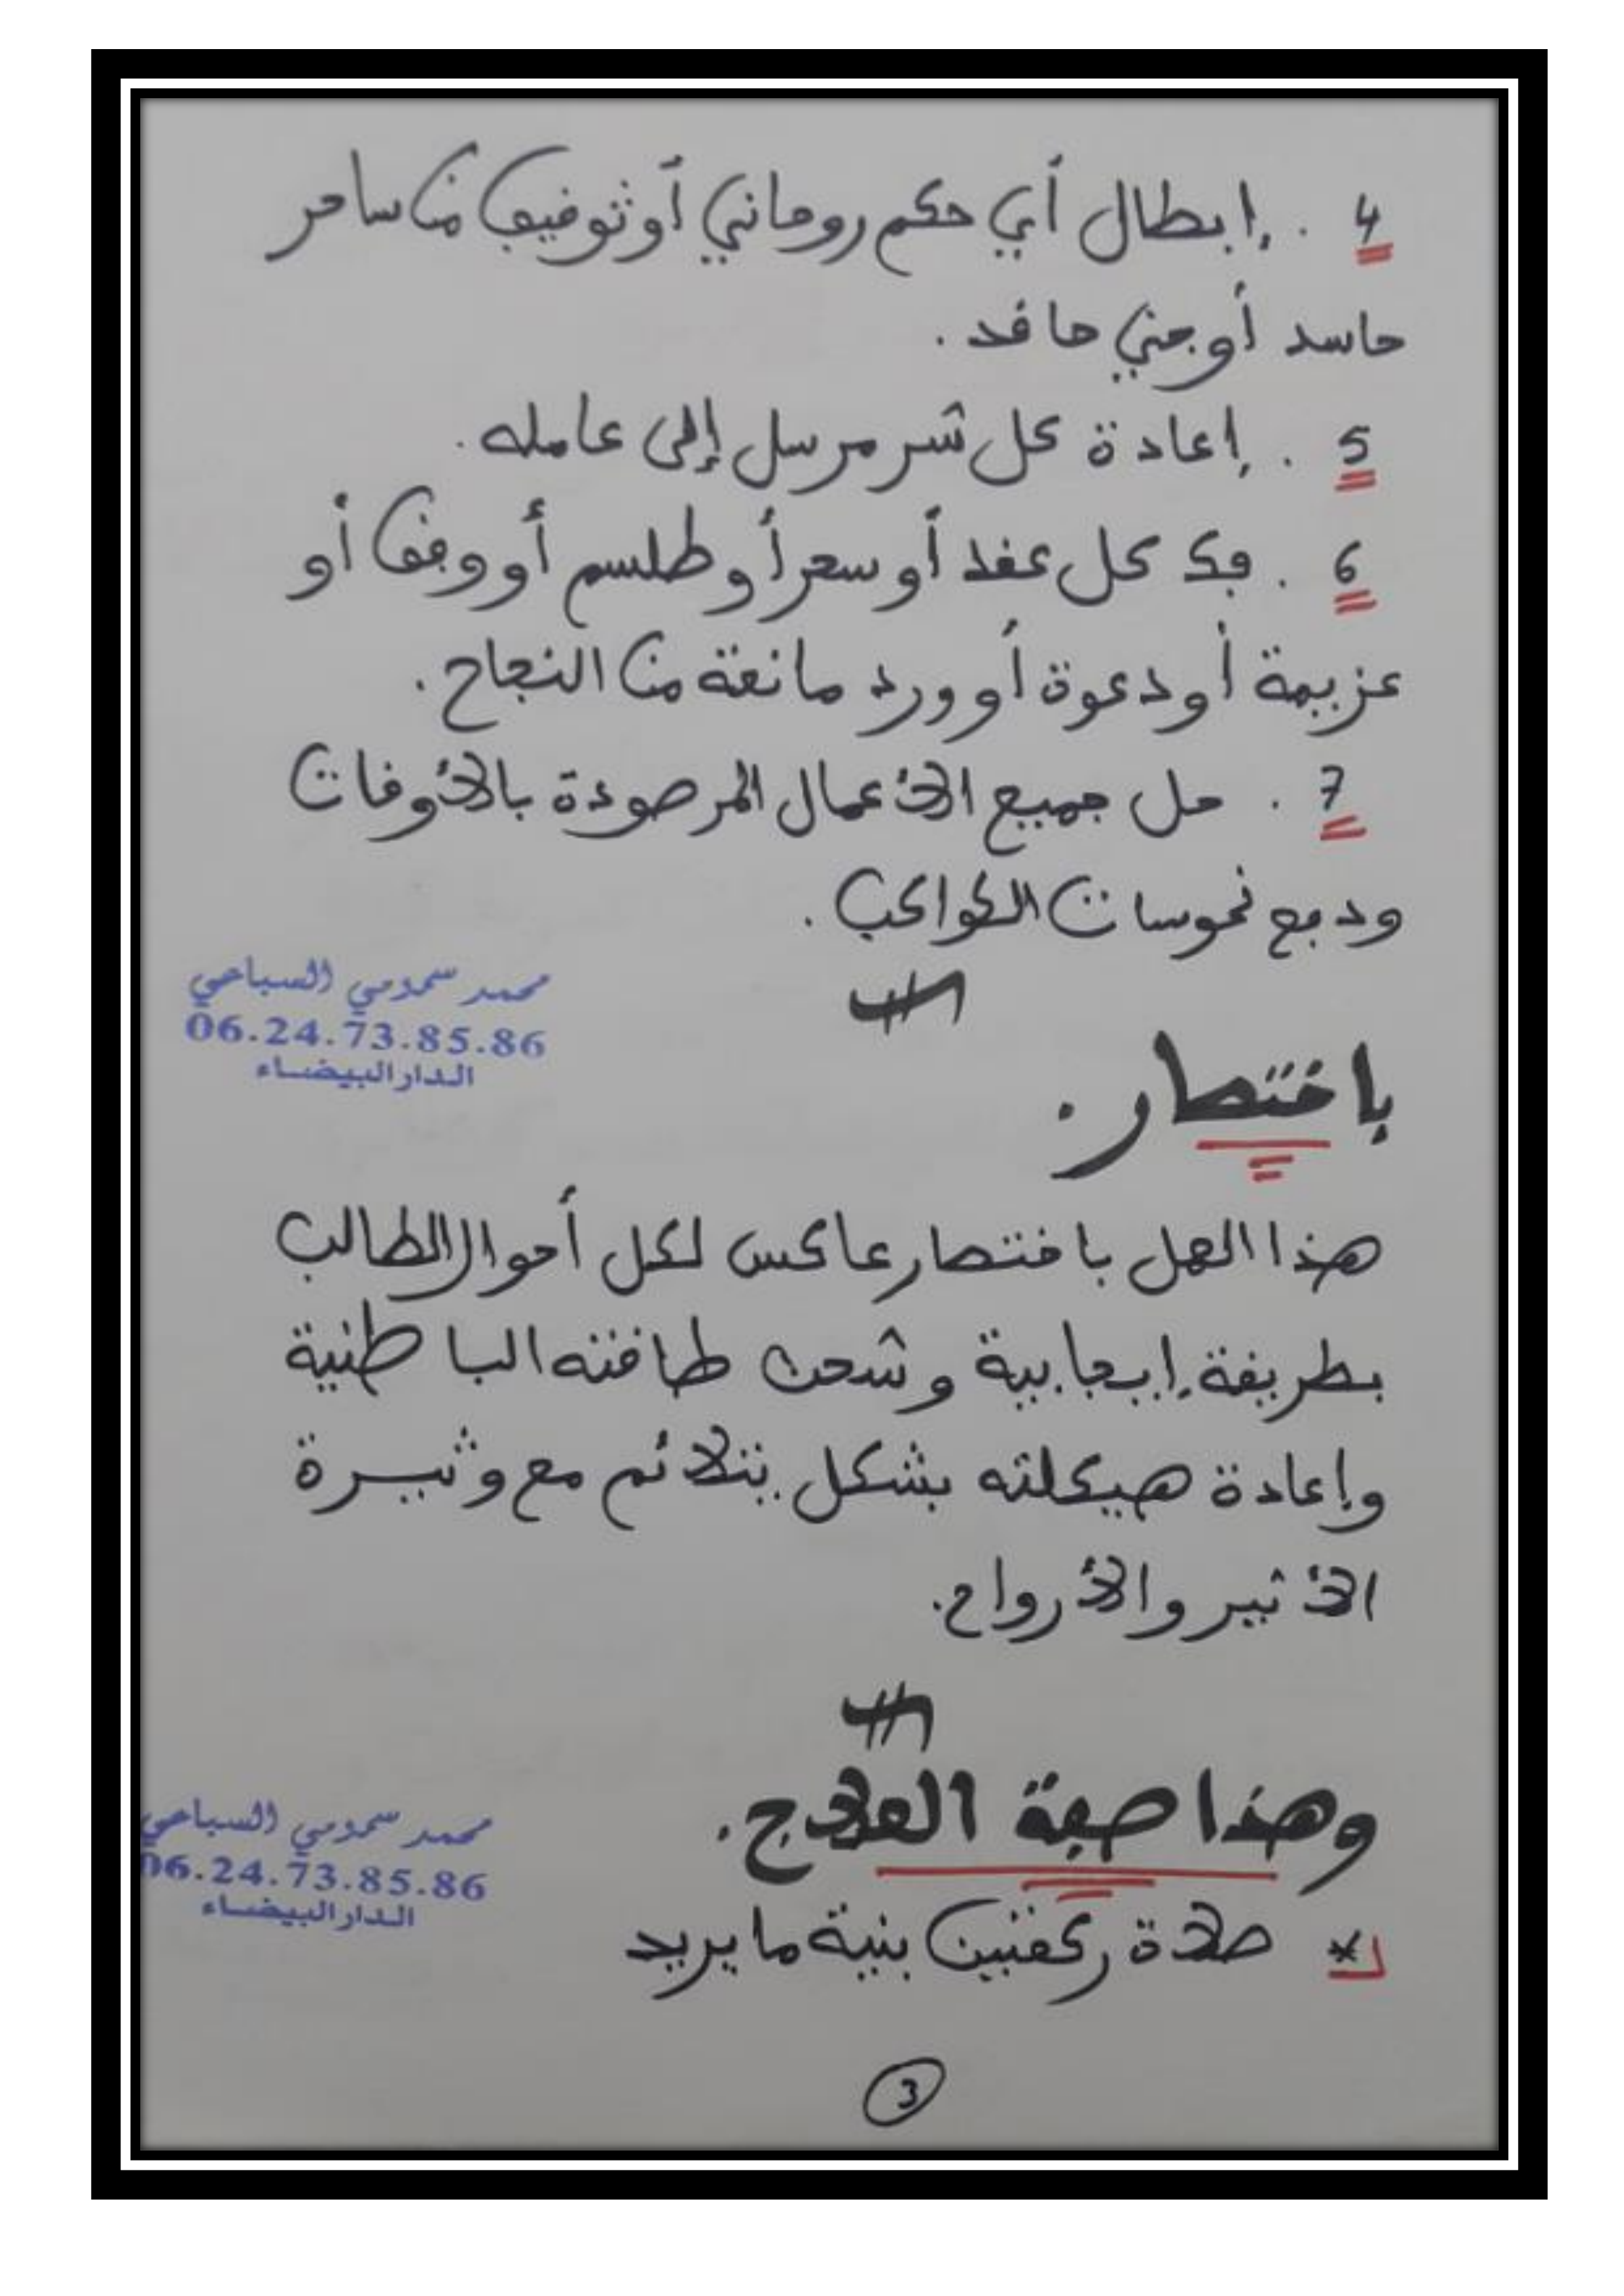 4 . إبطال أي حكم روحاني أو توفيق من ساحر
حاسد أو جني حاقد .
5 . إعادة كل شر مرسل إلى عامله .
6 . فك كل عقد أو سحر أو طلسم أو وفق أو
عزيمة أو دعوة أو ورد مانعة من النجاح .
7 . حل جميع الأعمال المرصودة بالأوقات
ودفع نحوسات الكواكب .
محمد سمومي السباعي
06.24.73.85.86
الدار البيضاء
باختصار .
هذا العمل باختصار عاكس لكل أحوال الطالب
بطريقة إيجابية وشحن طاقته الباطنية
وإعادة هيكلته بشكل يتلائم مع وثيرة
الأثير والأرواح .
وهذا صفة العلاج .
محمد سمومي السباعي
06.24.73.85.86
الدار البيضاء
* صلاة ركعتين بنية ما يريد
3